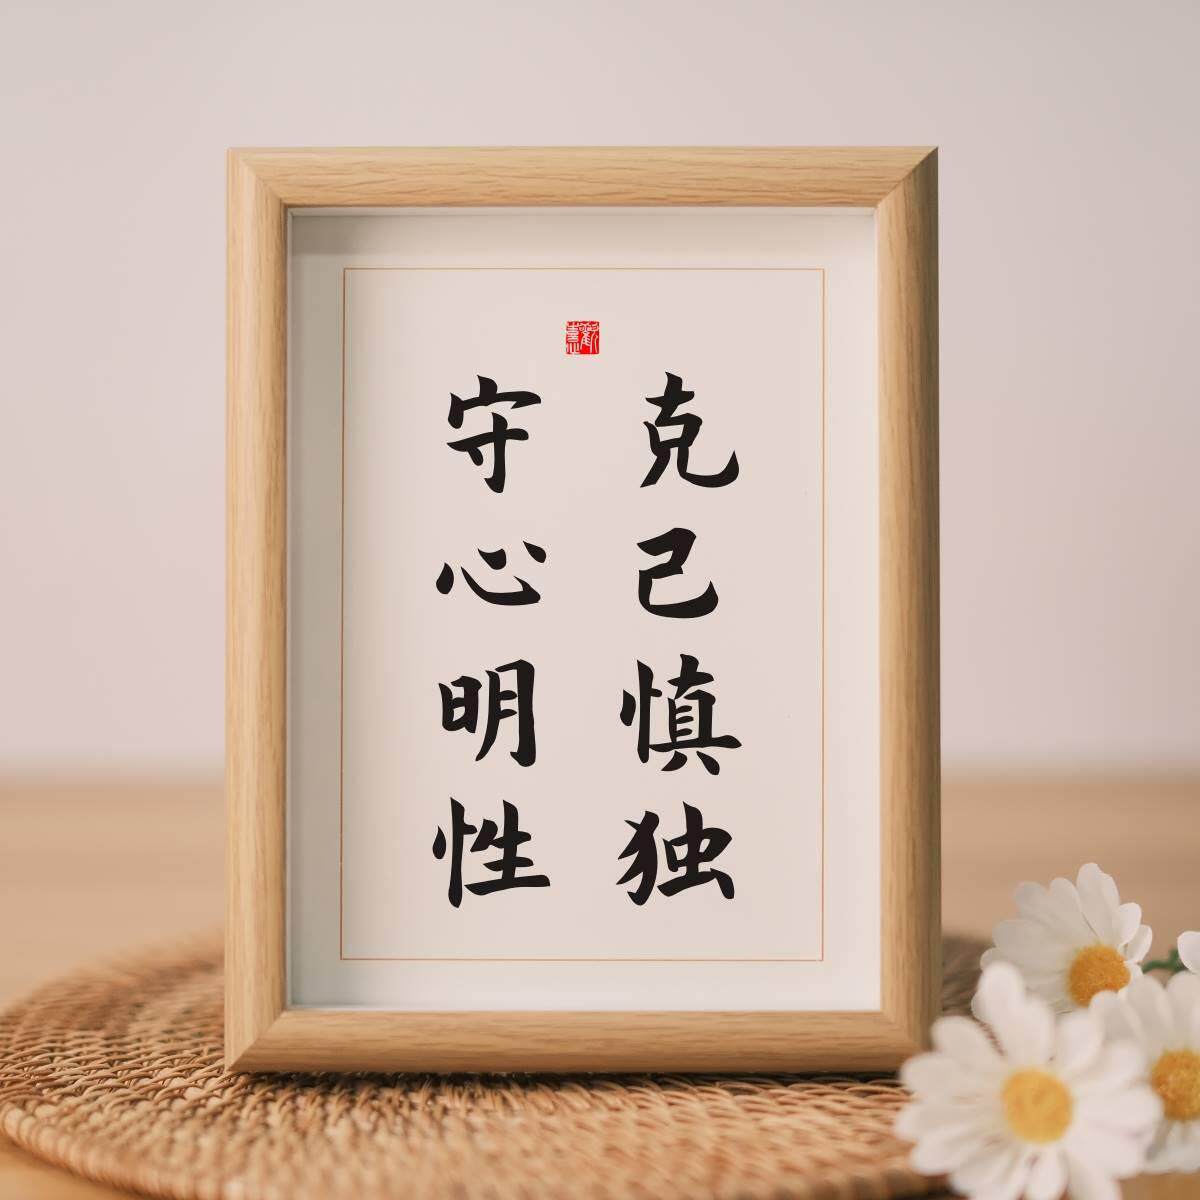 克己慎独
守心明性